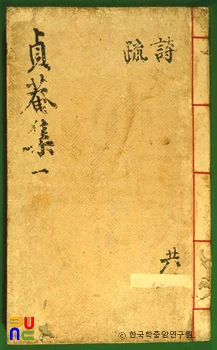 貞菴集一
詩
疏
共
© 한국학중앙연구원